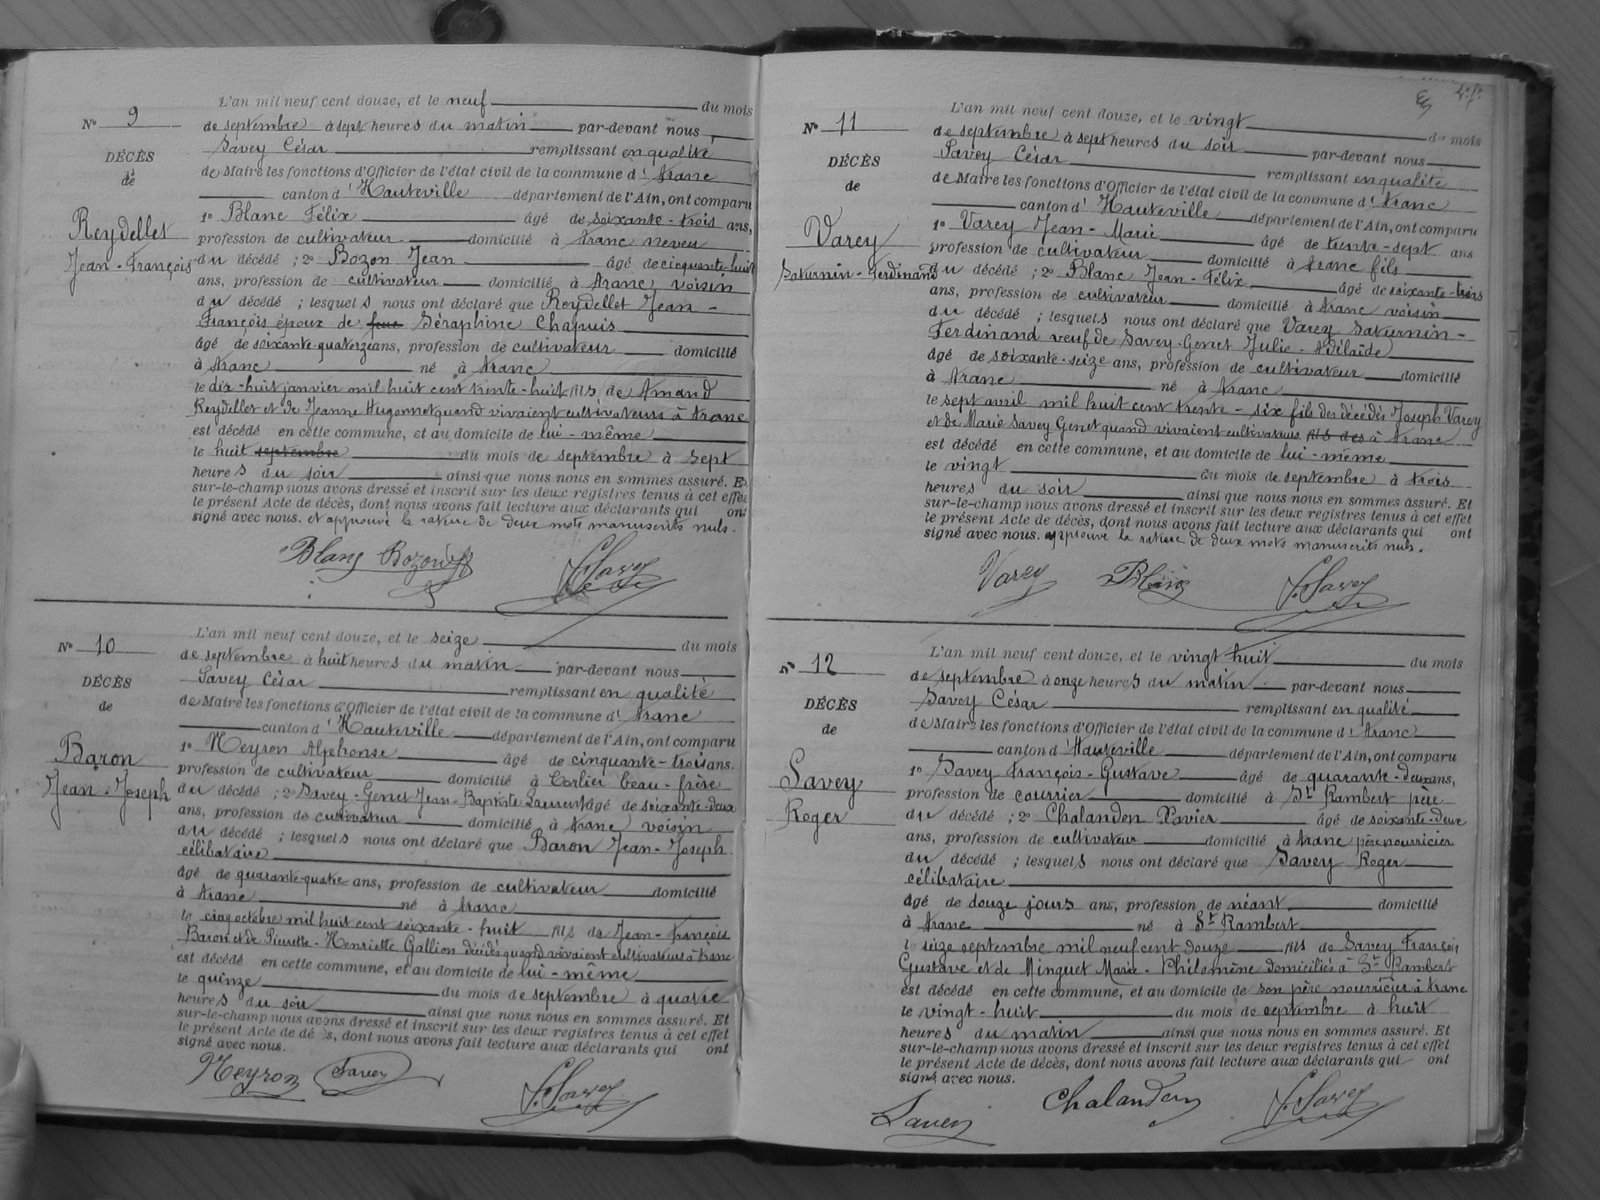 N° 9
DÉCÈS
de
Reydellet
Jean-François
L'an mil neuf cent douze, et le neuf du mois
de septembre à sept heures du matin par-devant nous,
Savey César remplissant en qualité
de Maire les fonctions d'Officier de l'état civil de la commune d'Aranc
canton d'Hauteville département de l'Ain, ont comparu
1° Blanc Félix âgé de soixante-trois ans,
profession de cultivateur domicilié à Aranc neveu
du décédé ; 2° Bozon Jean âgé de cinquante-huit
ans, profession de cultivateur domicilié à Aranc, voisin
du décédé ; lesquels nous ont déclaré que Reydellet Jean-
François époux de feue Séraphine Chapuis
âgé de soixante-quatorze ans, profession de cultivateur domicilié
à Aranc né à Aranc
le dix-huit janvier mil huit cent trente-huit fils de Amand
Reydellet et de Jeanne Hugonnet quand vivaient cultivateurs à Aranc
est décédé en cette commune, et au domicile de lui-même
le huit septembre du mois de septembre à sept
heures du soir ainsi que nous nous en sommes assuré. Et
sur-le-champ nous avons dressé et inscrit sur les deux registres tenus à cet effet
le présent Acte de décès, dont nous avons fait lecture aux déclarants qui ont
signé avec nous. et approuvé la rature de deux mots manuscrits nuls.
Blanc Bozon J. Savey
N° 10
DÉCÈS
de
Baron
Jean-Joseph
L'an mil neuf cent douze, et le seize du mois
de septembre à huit heures du matin par-devant nous
Savey César remplissant en qualité
de Maire les fonctions d'Officier de l'état civil de la commune d'Aranc
canton d'Hauteville département de l'Ain, ont comparu
1° Neyron Alphonse âgé de cinquante-trois ans.
profession de cultivateur domicilié à Corlier beau-frère
du décédé ; 2° Savey-Genet Jean-Baptiste Laurent âgé de soixante-deux
ans, profession de cultivateur domicilié à Aranc voisin
du décédé ; lesquels nous ont déclaré que Baron Jean-Joseph
célibataire
âgé de quarante-quatre ans, profession de cultivateur domicilié
à Aranc né à Aranc
le cinq octobre mil huit cent soixante-huit fils de Jean-François
Baron et de Pierrette-Henriette Gallion décédés quand vivaient cultivateurs à Aranc
est décédé en cette commune, et au domicile de lui-même
le quinze du mois de septembre à quatre
heures du soir ainsi que nous nous en sommes assuré. Et
sur-le-champ nous avons dressé et inscrit sur les deux registres tenus à cet effet
le présent Acte de décès, dont nous avons fait lecture aux déclarants qui ont
signé avec nous.
Neyron Savey J. Savey
N° 11
DÉCÈS
de
Varey
Saturnin-Ferdinand
L'an mil neuf cent douze, et le vingt du mois
de septembre à sept heures du soir par-devant nous
Savey César remplissant en qualité
de Maire les fonctions d'Officier de l'état civil de la commune d'Aranc
canton d'Hauteville département de l'Ain, ont comparu
1° Varey Jean-Marie âgé de trente-sept ans
profession de cultivateur domicilié à Aranc fils
du décédé ; 2° Blanc Jean-Félix âgé de soixante-trois
ans, profession de cultivateur domicilié à Aranc voisin
du décédé ; lesquels nous ont déclaré que Varey Saturnin-
Ferdinand veuf de Savey-Genet Julie-Adélaïde
âgé de soixante-seize ans, profession de cultivateur domicilié
à Aranc né à Aranc
le sept avril mil huit cent trente-six fils des décédés Joseph Varey
et de Marie Savey Genet quand vivaient cultivateurs fils des à Aranc
est décédé en cette commune, et au domicile de lui-même
le vingt du mois de septembre à trois
heures du soir ainsi que nous nous en sommes assuré. Et
sur-le-champ nous avons dressé et inscrit sur les deux registres tenus à cet effet
le présent Acte de décès, dont nous avons fait lecture aux déclarants qui ont
signé avec nous. approuvé la rature de deux mots manuscrits nuls.
Varey Blanc J. Savey
N° 12
DÉCÈS
de
Savey
Roger
L'an mil neuf cent douze, et le vingt huit du mois
de septembre à onze heures du matin par-devant nous
Savey César remplissant en qualité
de Maire les fonctions d'Officier de l'état civil de la commune d'Aranc
canton d'Hauteville département de l'Ain, ont comparu
1° Savey François-Gustave âgé de quarante-deux ans,
profession de courrier domicilié à St Rambert père
du décédé ; 2° Chalandon Xavier âgé de soixante-deux
ans, profession de cultivateur domicilié à Aranc père nourricier
du décédé ; lesquels nous ont déclaré que Savey Roger
célibataire
âgé de douze jours ans, profession de néant domicilié
à Aranc né à St Rambert
le seize septembre mil neuf cent douze fils de Savey François
Gustave et de Minguet Marie-Philomène domiciliés à St Rambert
est décédé en cette commune, et au domicile de son père nourricier à Aranc
le vingt-huit du mois de septembre à huit
heures du matin ainsi que nous nous en sommes assuré. Et
sur-le-champ nous avons dressé et inscrit sur les deux registres tenus à cet effet
le présent Acte de décès, dont nous avons fait lecture aux déclarants qui ont
signé avec nous.
Savey Chalandon J. Savey